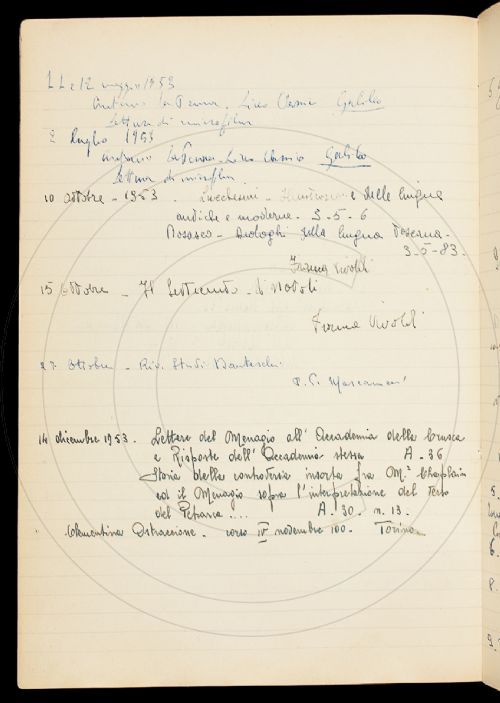 11 e 12 maggio 1953
Antonio La Penna. Liceo Classico Galileo
Lettura di microfilm
2 Luglio 1953
Antonio La Penna - Liceo Classico Galileo
Lettura di microfilm
10 ottobre - 1953. Lucchesini - Illustrazione delle lingue
antiche e moderne - 3-5-6
Rosasco - Dialoghi della lingua Toscana -
3-5-83.
Franca Vivoldi
15 Ottobre - Il Settecento - di Natali
Franca Vivoldi
27 Ottobre - Riv. Studi Danteschi
14 dicembre 1953. Lettere del Menagio all' Accademia della Crusca
e Risposte dell' Accademia stessa A - 36
Storia della controversia insorta fra M.r Chaplain
ed il Menagio sopra l'interpretazione del testo
del Petrarca .... A. 30. n. 13.
Clementina corso IV novembre 100. Torino